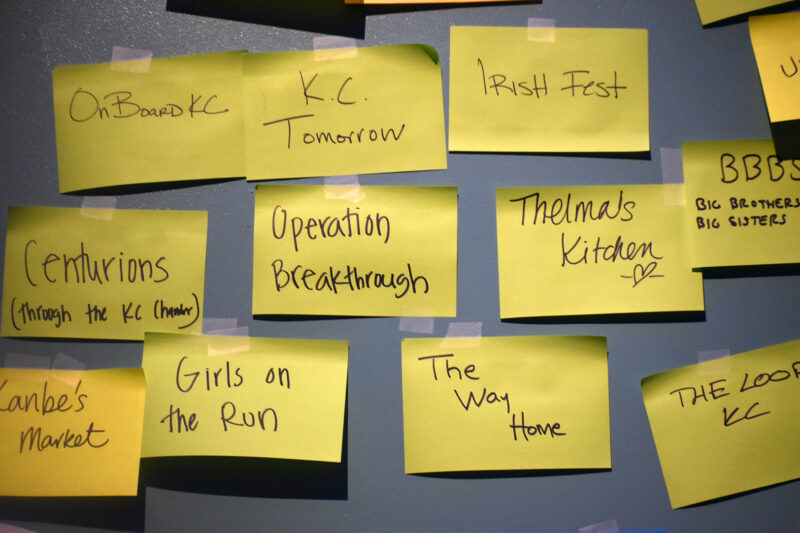 OnBoardKC
K.C.
Tomorrow
IRISH FEST
BBBS
BIG BROTHERS
BIG SISTERS
Centurions
(through the KC Chamber)
Operation
Breakthrough
Thelma's
Kitchen
Kanbe's
Market
Girls on
the Run
The
Way
Home
THE LOOP
KC